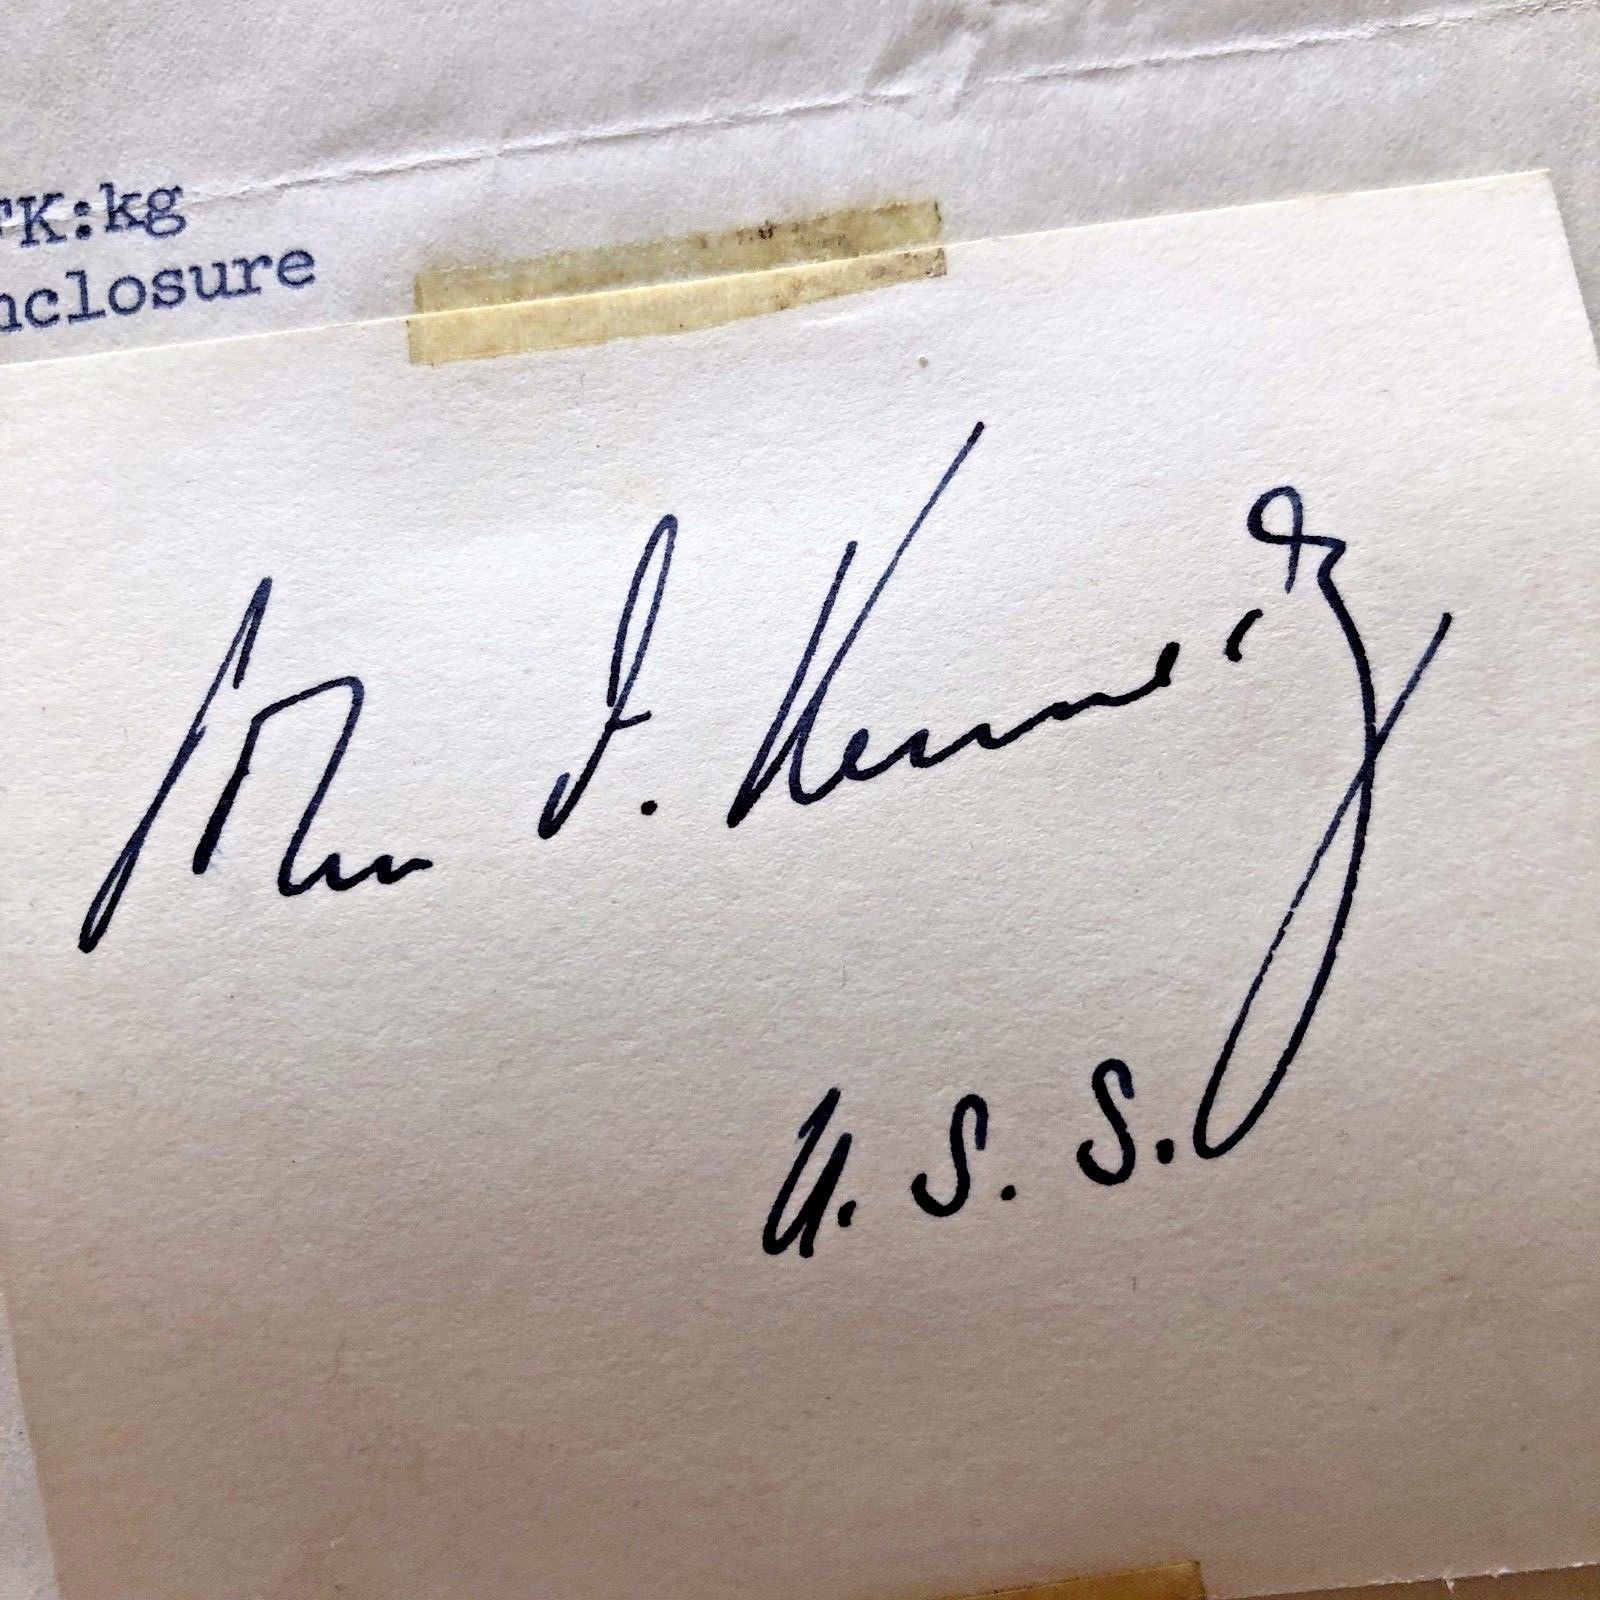 FK:kg
nclosure
John F. Kennedy
U.S.S.